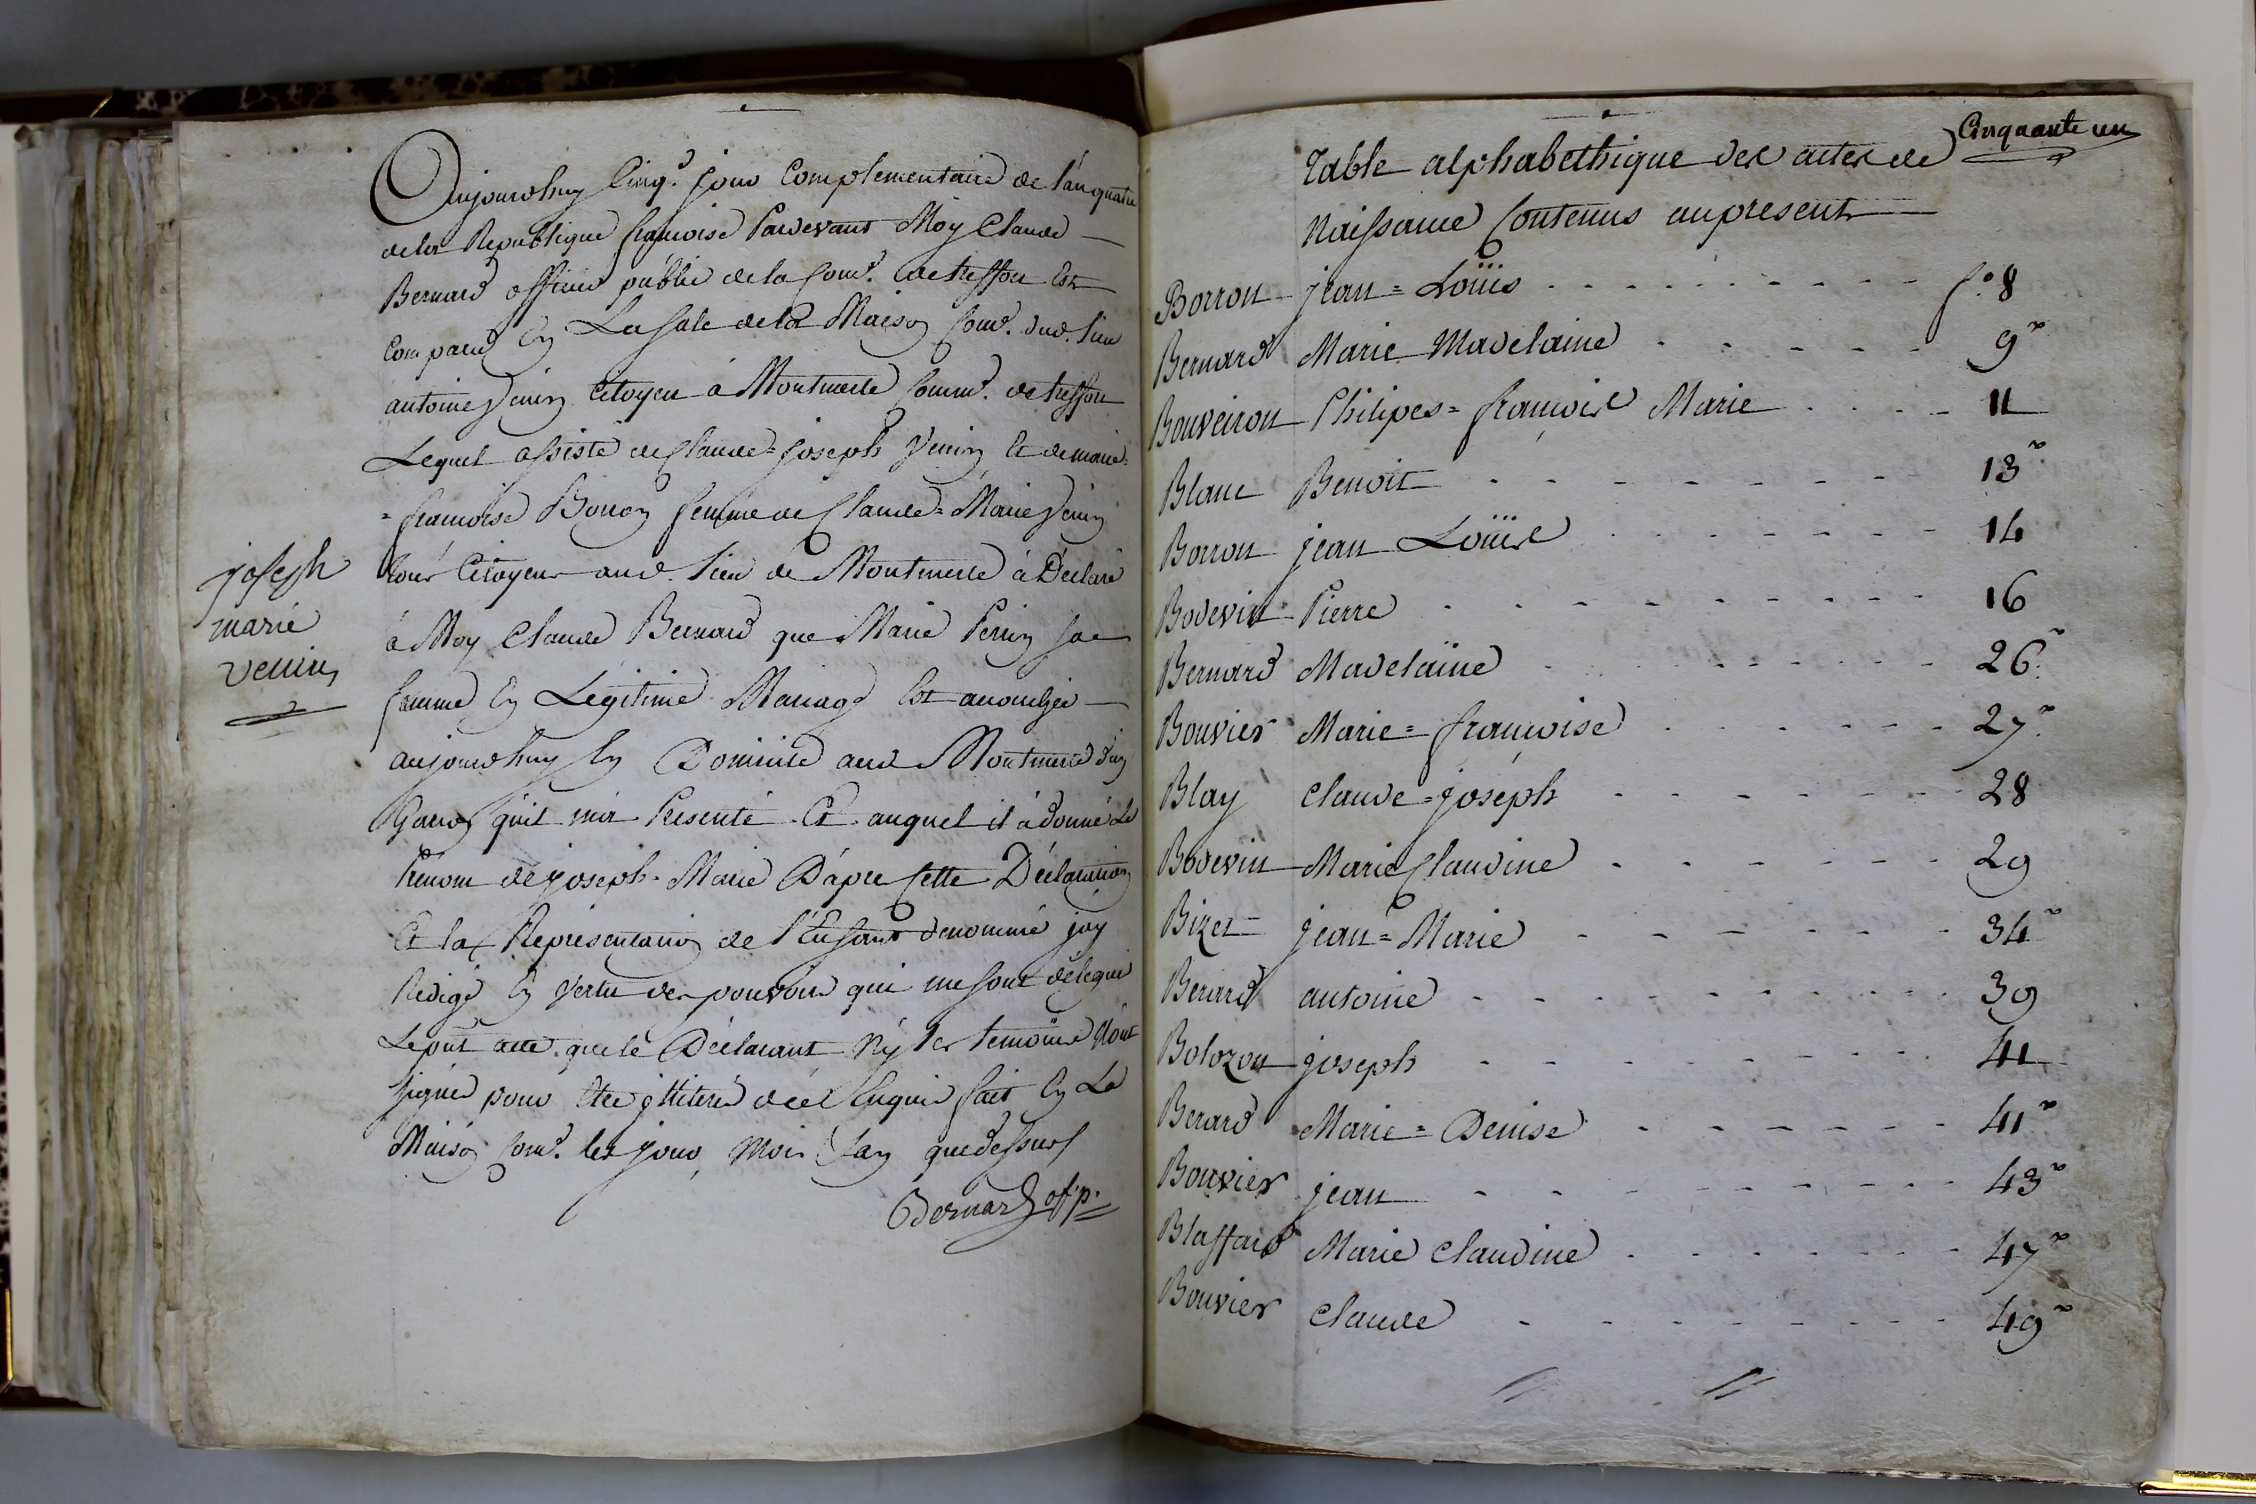 Aujourdhuy Cinq.e jour Complementaire de l'an quatre
de la Republique françoise Pardevant Moy Claude
Bernard officier public de la Com.e de treffort Est
comparu En La Sale de la Maison Com.e dud. lieu
antoine Venin Citoyen à Montmerle Comm.e de treffort
Lequel assisté de Claude=joseph Venin et de marie=
=françoise Borron femme de Claude=Marie Venin
tous Citoyens aud. lieu de Montmerle à Déclaré
à Moy Claude Bernard que Marie Perrin sa
femme En Legitime Mariage Est accouchée
aujourdhuy En Domicile aud Montmerle d'un
Garçon qu'il m'a Presenté Et auquel il à donné Le
Prénom de joseph-Marie D'apres Cette Déclaration
Et la Représentation de l'Enfant denommé jay
Redigé En Vertu des pouvoirs qui me sont délegués
Le pnt acte que le Déclarant Ny les temoins N'ont
Signé pour être illiterés de ce Enquis fait En La
Maison Com.e les jour, Mois & an que dessus
Bernard of. p.
joseph
marie
venin
Cinquante un
Table alphabethique des actes de
Naissance Contenus au present
Borron jean=Loüis . . . . . . . . f.o 8
Bernard Marie Madelaine . . . . . . 9.v
Bouveiron Philipes=françoise Marie . . . . 11
Blanc Benoit . . . . . . . . 13.v
Borron jean Loüise . . . . . . . 14
Bodevin Pierre . . . . . . . . . 16
Bernard Madelaine . . . . . . . . 26.v
Bouvier Marie=françoise . . . . . . . 27.v
Blay Claude=joséph . . . . . . . 28
Bodevin Marie Claudine . . . . . . . 29
Bizet jean=Marie . . . . . . . 34.v
Berard antoine . . . . . . . . . 39
Bolozon joseph . . . . . . . . . 41
Berard Marie=Denise . . . . . . . 41.v
Bouvier jean . . . . . . . . . 43.v
Blaffard Marie Claudine . . . . . . . 47.v
Bouvier Claude . . . . . . . . 49.v